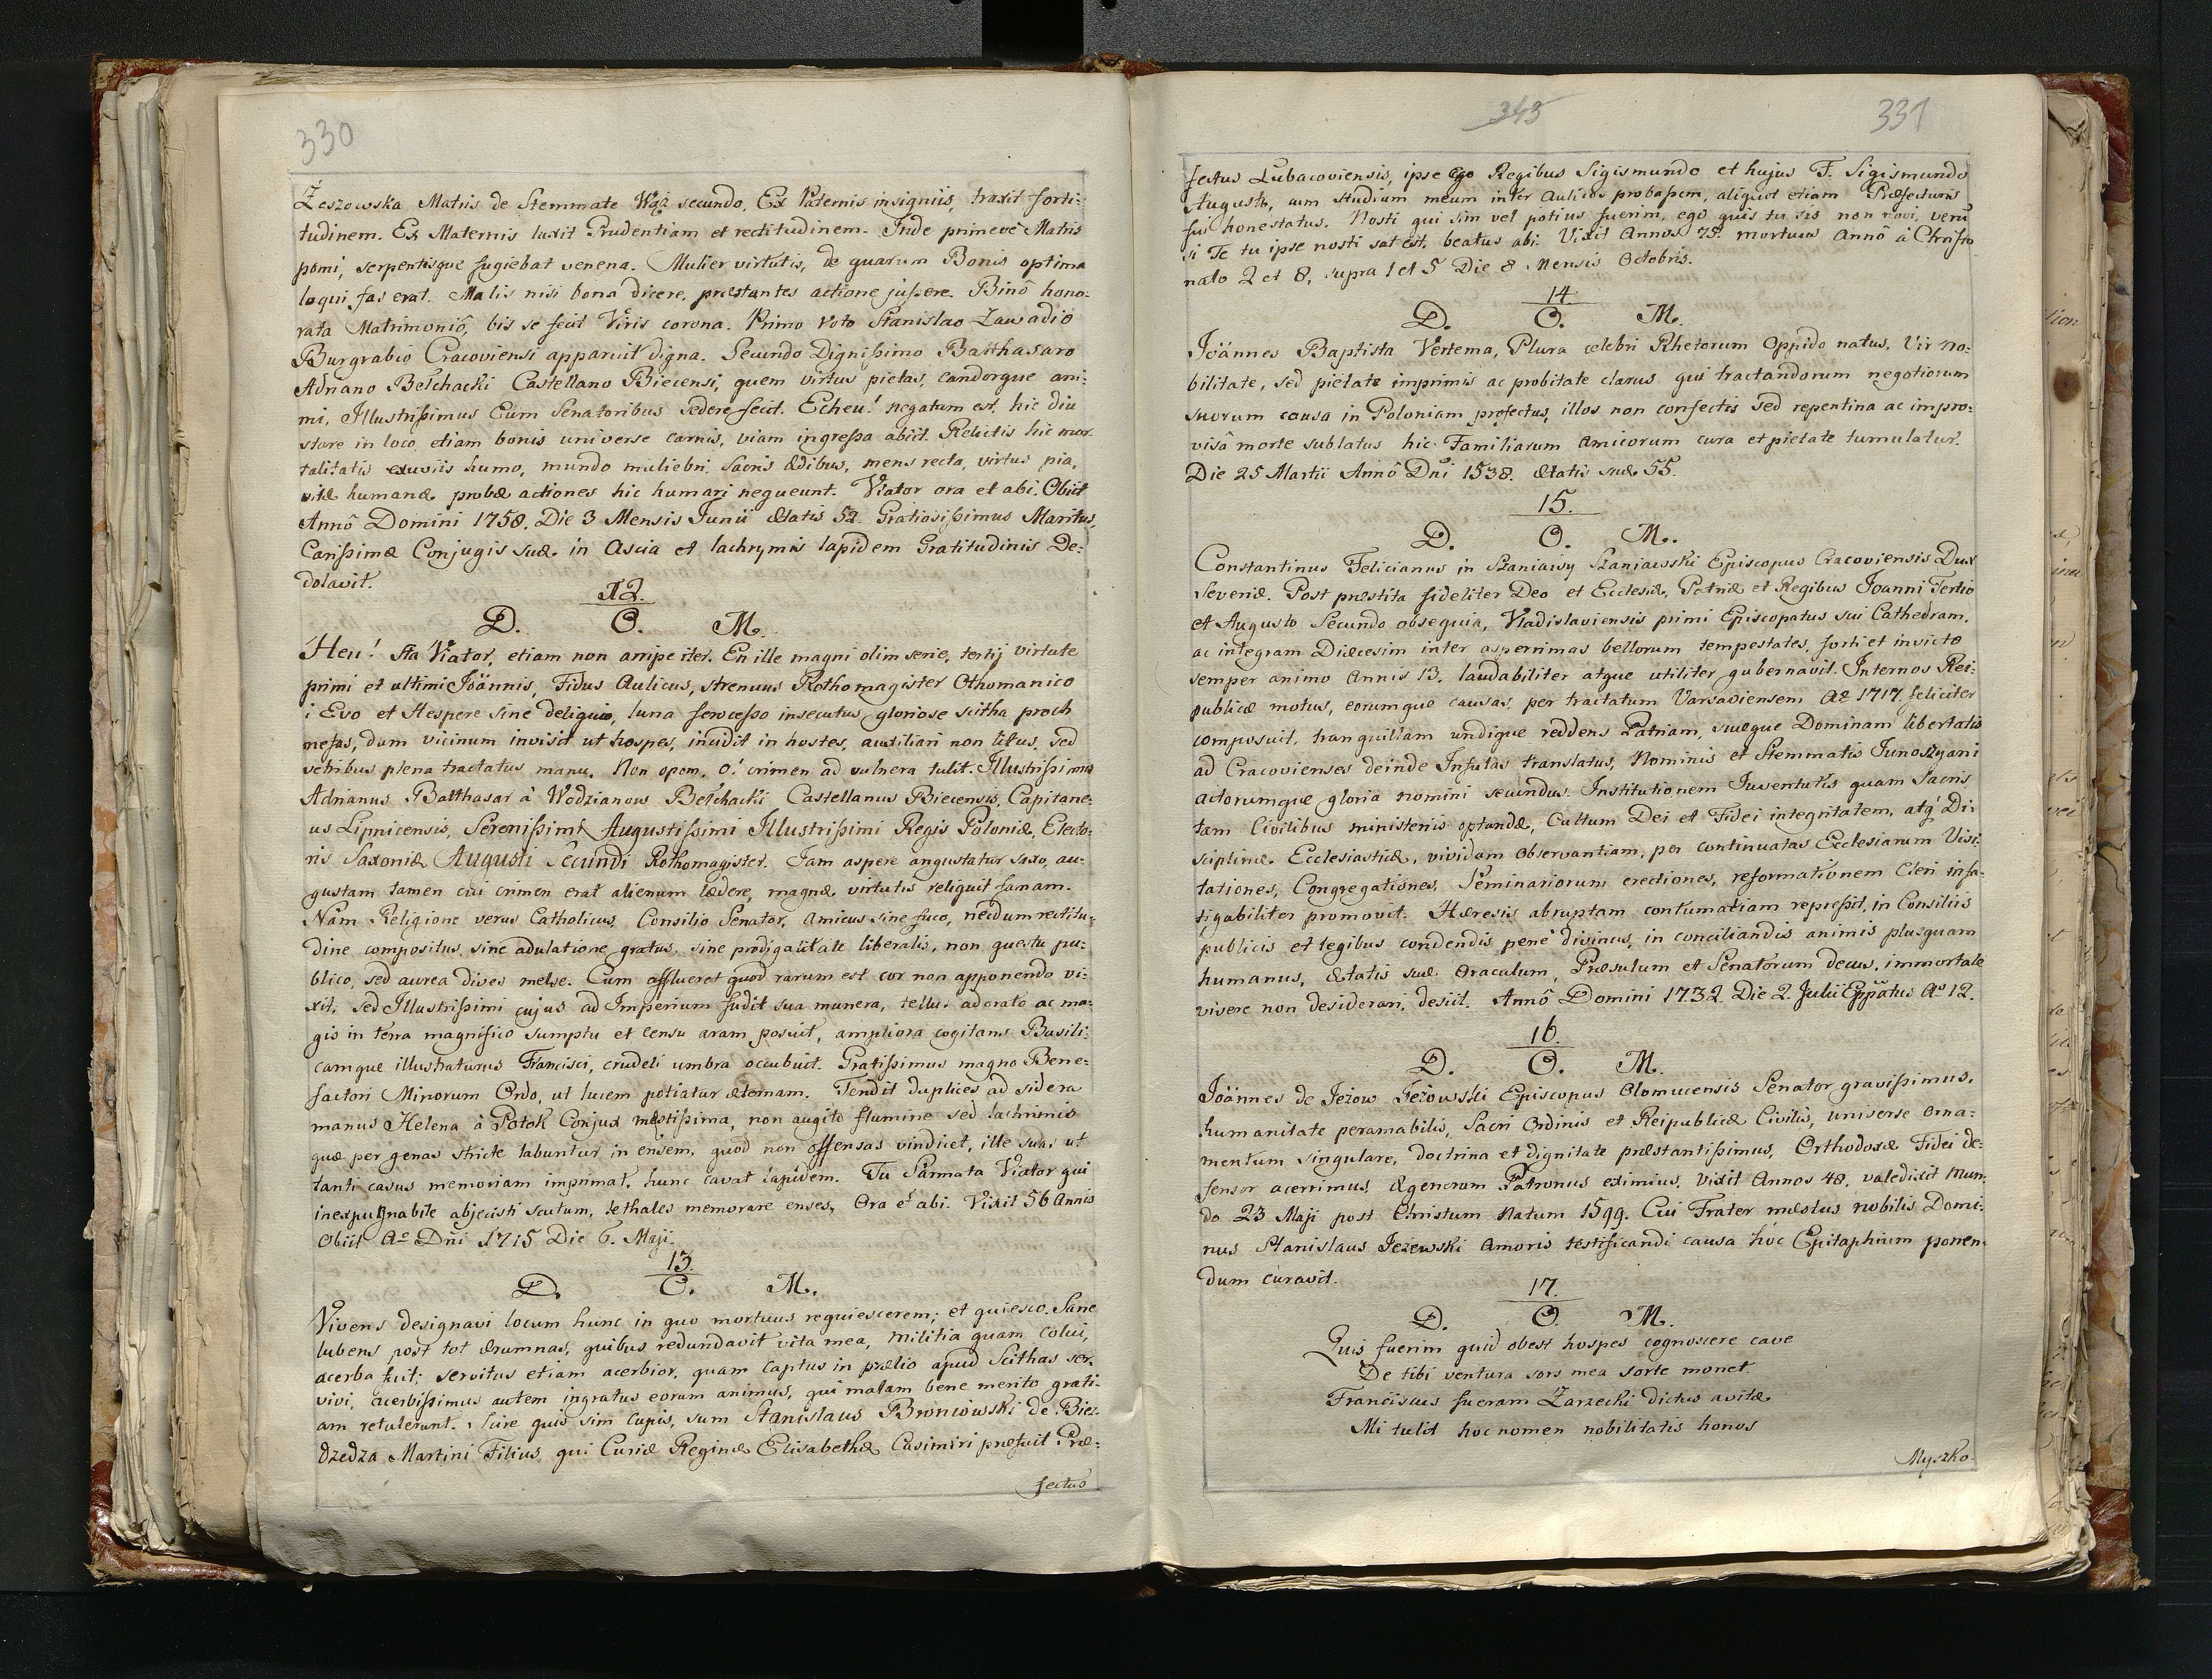 330
Żeszowska Matris de Stemmate Wąż secundo. Ex Paternis insigniis, traxit forti-
tudinem. Ex Maternis luxit Prudentiam et rectitudinem. Inde primeve Matris
pomi, serpentisque fugiebat venena. Mulier virtutis, de quarum Bonis optima
loqui fas erat. Malis nisi bona dicere, præstantes actione jussere. Binô hono-
rata Matrimoniô, bis se fecit Viris corona. Primo Voto Stanislao Zawadio
Burgrabio Cracoviensi apparuit digna. Secundo Dignissimo Balthasaro
Adriano Bełchacki Castellano Biecensi, quem virtus pietas, candorque ani-
mi, Illustrissimus Eum Senatoribus sedere fecit. Echeu! negatum est, hic diu
stare in loco etiam bonis universe carnis, viam ingressa abiit. Relictis hic mor
talitatis exuviis humo, mundo muliebri, sacris ædibus, mens recta, virtus pia,
vitæ humanæ probæ actiones hic humari nequeunt. Viator ora et abi. Obiit
Annô Domini 1758. Die 3 Mensis Junii ætatis 52. Gratiosissimus Maritus,
Carissimæ Conjugis suæ in Ascia et lachrymis lapidem Gratitudinis De-
dolavit.
12.
D. O. M.
Heu! sta Viator, etiam non arripe iter. En ille magni olim serie, tertij virtute
primi et ultimi Joannis, Fidus Aulicus, strenuus Rothomagister Othomanico
i Evo et Hespere sine deliquio, luna ferocesso insecutus gloriose scitha proch
nefas, dum vicinum invisit ut hospes, incidit in hostes, auxiliari non litus, sed
vetribus plena tractatus manu. Non opem, o! crimen ad vulnera tulit. Illustrissimus
Adrianus Balthasar à Wodzianow Bełchacki Castellanus Biecensis, Capitane-
us Lipnicensis, Serenissimi Augustissimi Illustrissimi Regis Poloniæ, Electo-
ris Saxoniæ Augusti Secundi Rothomagister. Jam aspere angustatur saxo, au-
gustam tamen cui crimen erat alienum lædere, magnæ virtutis reliquit famam.
Nam Religione verus Catholicus, Consilio Senator, amicus sine fuco, necdum rectitu-
dine compositus, sine adulatione gratus, sine prodigalitate liberalis, non questu pu-
blico, sed aurea dives melse. Cum afflueret quod rarum est cor non apponendo vi-
xit, sed Illustrissimi cujus ad Imperium fudit sua munera, tellus adorato ac ma-
gis in terra magnifico sumptu et censu aram posuit, ampliora cogitans Basili-
camque illustraturus Francisci, crudeli umbra occubuit. Gratissimus magno Bene-
factori Minorum Ordo, ut lucem potiatur æternam. Tendit duplices ad sidera
manus Helena à Potok Conjux mæstissima, non augito flumine sed lachrimis
quæ per genas stricte labuntur in ensem, quod non offensas vindicet, ille suas ut
tanti casus memoriam imprimat, hunc cavat lapidem. Tu Sarmata Viator qui
inexpugnabile abjecisti scutum, lethales memorare enses, Ora et abi. Vixit 56 Annis
Obiit Aº Dñi 1715 Die 6. Maji.
13.
D. O. M.
Vivens designavi locum hunc in quo mortuus requiescerem; et quiesco. Sane
lubens post tot ærumnas, quibus redundavit vita mea, militia quam colui,
acerba fuit; servitus etiam acerbior, quam Captus in prælio apud Scithas ser-
vivi, acerbissimus autem ingratus eorum animus, qui malam bene merito grati-
am retulerunt. Scire quis sim cupis, sum Stanislaus Broniowski de Biez-
dzedza Martini Filius, qui Curiæ Reginæ Elisabethæ Casimiri præfuit Præ-
fectus
345
331
fectus Lubacoviensis, ipse ego Regibus Sigismundo et hujus F. Sigismundo
Augusto, cum studium meum inter Aulicos probassem, aliquot etiam Præfecturis
fui honestatus. Nosti qui sim vel potius fuerim, ego quis tu sis non novi, verũ
si Te tu ipse nosti sat est, beatus abi. Vixit Annos 75. mortuus Annô à Christo
nato 2 et 8, supra 1 et 5 Die 8 Mensis Octobris.
14.
D. O. M.
Joännes Baptista Vertema, Plura celebri Rhetorum Oppido natus, Vir no-
bilitate, sed pietate imprimis ac probitate clarus qui tractandorum negotiorum
suorum causa in Poloniam profectus, illos non confectis sed repentina ac impro-
visâ morte sublatus hic Familiarum Amicorum cura et pietate tumulatur.
Die 25 Martii Annô Dñi 1538. ætatis suæ 55.
15.
D. O. M.
Constantinus Felicianus in Szaniawy Szaniawski Episcopus Cracoviensis Dux
Severiæ. Post præstita fideliter Deo et Ecclesiæ, Patriæ et Regibus Joanni Tertio
et Augusto Secundo obsequia, Vladislaviensis primi Episcopatus sui Cathedram,
ac integram Diæcesim inter asperrimas bellorum tempestates, forti et invicto
semper animo Annis 13. laudabiliter atque utiliter gubernavit. Internos Rei-
publicæ motus, eorumque causas, per tractatum Varsaviensem Aº 1717. feliciter
composuit, tranquillam undique reddens Patriam, suæque Dominam libertatis
ad Cracovienses deinde Infulas translatus, Nominis et Stemmatis Junoszyani
actorumque gloria nomini secundus. Institutionem Juventutis quam Sacris
tam Civilibus ministeriis optandæ, Cultum Dei et Fidei integritatem, atq̃ Di-
sciplinæ Ecclesiasticæ, vividam Observantiam, per continuatas Ecclesiarum Visi-
tationes, Congregationes, Seminariorum erectiones, reformationem Cleri infa-
tigabiliter promovit. Hæresis abruptam contumatiam repressit, in Consiliis
publicis et legibus condendis penè divinus, in conciliandis animis plusquam
humanus, ætatis suæ Oraculum, Præsulum et Senatorum decus, immortale
vivere non desiderari, desiit. Annô Domini 1732. Die 2. Julii Eppãtus Aº 12.
16.
D. O. M.
Joännes de Jeżow Jeżowski Episcopus Olomucensis Senator gravissimus,
humanitate peramabilis, Sacri Ordinis et Reipublicæ Civilis, universe Orna-
mentum singulare, doctrina et dignitate præstantissimus, Orthodoxæ Fidei de-
fensor acerrimus, Ægenorum Patronus eximius, vixit Annos 48. valedixit mun-
do 23 Maji post Christum Natum 1599. Cui Frater mæstus nobilis Domi-
nus Stanislaus Jeżewski Amoris testificandi causa hoc Epitaphium ponen-
dum curavit.
17.
D. O. M.
Quis fuerim quid obest hospes cognoscere cave
De tibi ventura sors mea sorte monet
Franciscus fueram Zarzecki dictus avitæ
Mi tulit hoc nomen nobilitatis honos
Myszko.